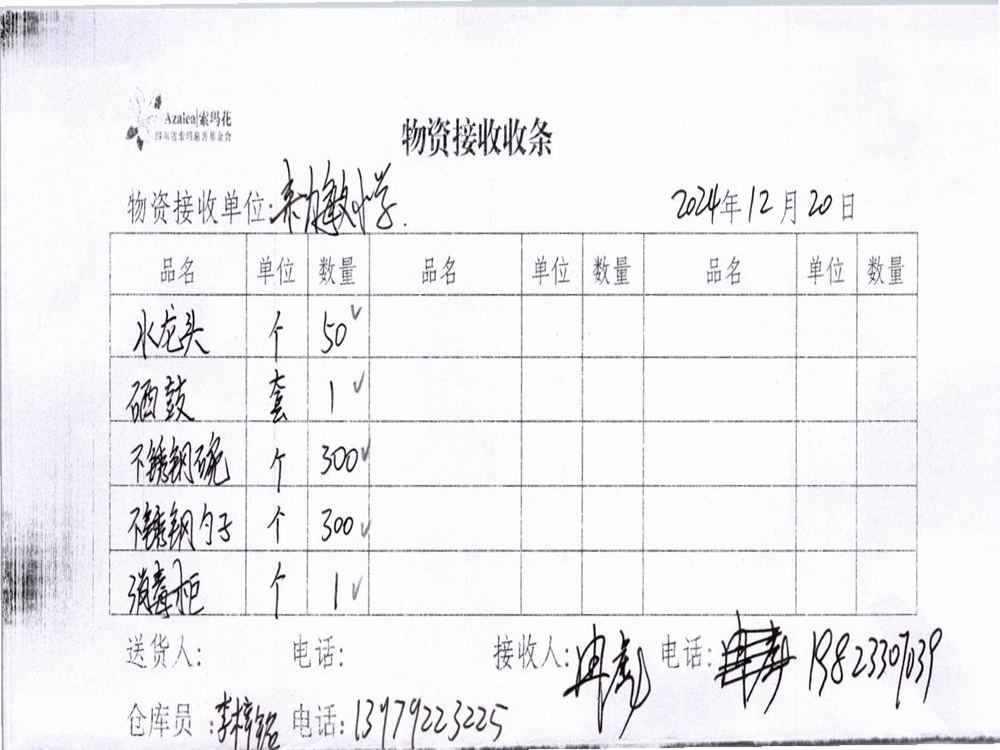 Azalea|索玛花
四川省索玛慈善基金会
物资接收收条
物资接收单位: 小学.
2024年12月20日
品名 单位 数量 品名 单位 数量 品名 单位 数量
水龙头 个 50
硒鼓 套 1
不锈钢碗 个 300
不锈钢勺子 个 300
消毒柜 个 1
送货人: 电话: 接收人: 冉 电话: 19823307039
仓库员: 李梓铭 电话: 13979223225